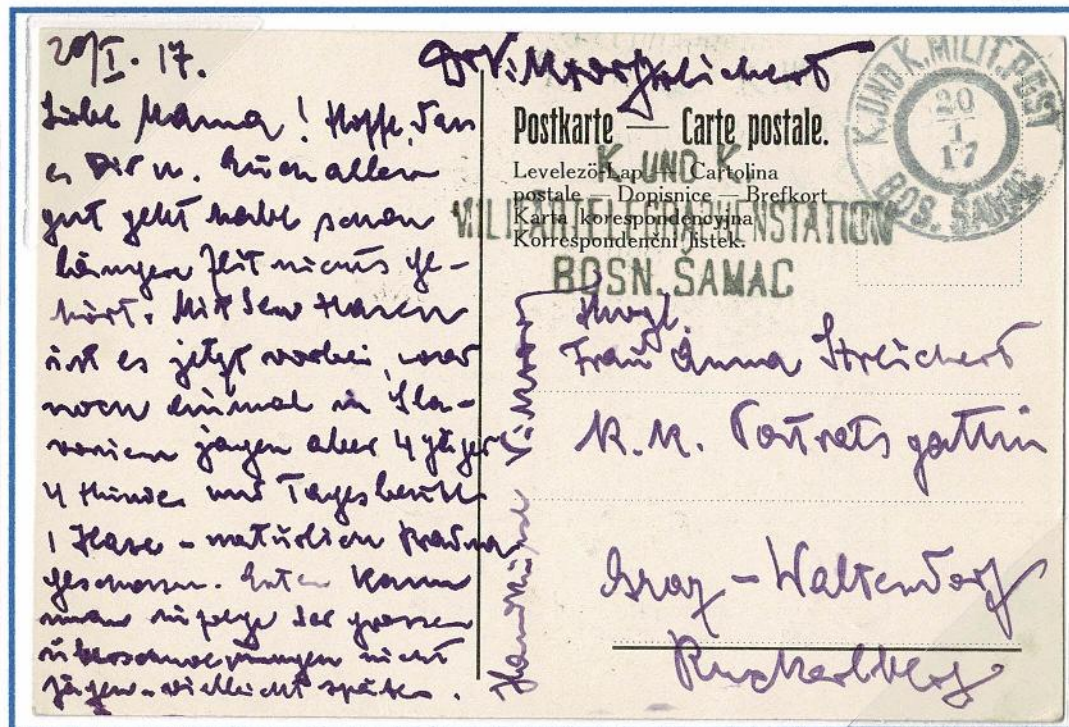 20/I. 17.
Liebe Mama! Hoffe, dass
es Dir u. Euch allen
gut geht habe schon
längere Zeit nichts ge-
hört. Mit den Hasen
ist es jetzt vorbei, war
noch einmal in Sla-
vonien jagen aber 4 Jäger
4 Hunde und Tagesbeute
1 Hase – natürlich
geschossen. Enten kann
man infolge der grossen
Überschwemmungen nicht
jagen – vielleicht später.
Handküsse
Postkarte — Carte postale.
Levelező-Lap — Cartolina
postale — Dopisnice — Brefkort
Karta korespondencyjna
Korrespondenční lístek.
K. UND K.
MILITÄRTELEGRAPHENSTATION
BOSN. ŠAMAC
K. UND K. MILIT. POST
20
I
17
BOS. ŠAMAC
Frau Anna Streichert
K. K. gattin
Graz – Waltendorf
Ruckerlberg